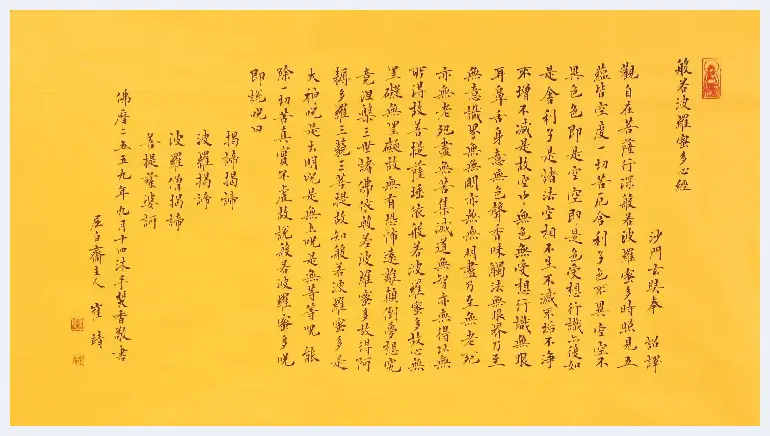 般若波羅蜜多心經
沙門玄奘奉 詔譯
觀自在菩薩行深般若波羅蜜多時照見五
蘊皆空度一切苦厄舍利子色不異空空不
異色色即是空空即是色受想行識亦復如
是舍利子是諸法空相不生不滅不垢不淨
不增不減是故空中無色無受想行識無眼
耳鼻舌身意無色聲香味觸法無眼界乃至
無意識界無無明亦無無明盡乃至無老死
亦無老死盡無苦集滅道無智亦無得以無
所得故菩提薩埵依般若波羅蜜多故心無
罣礙無罣礙故無有恐怖遠離顛倒夢想究
竟涅槃三世諸佛依般若波羅蜜多故得阿
耨多羅三藐三菩提故知般若波羅蜜多是
大神咒是大明咒是無上咒是無等等咒能
除一切苦真實不虛故說般若波羅蜜多咒
即說咒曰
揭諦揭諦
波羅揭諦
波羅僧揭諦
菩提薩婆訶
佛曆二五五九年九月十四沐手焚香敬書
齋主人 崔靖